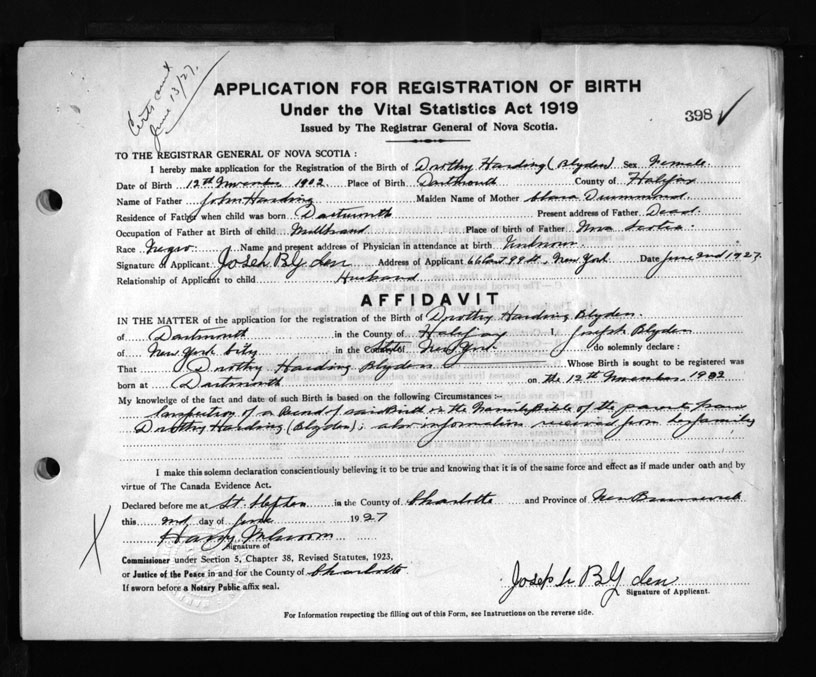 Certs sent
June 13/27.
APPLICATION FOR REGISTRATION OF BIRTH
Under the Vital Statistics Act 1919
398 ✓
Issued by The Registrar General of Nova Scotia.
TO THE REGISTRAR GENERAL OF NOVA SCOTIA :
I hereby make application for the Registration of the Birth of Dorothy Harding (Blyden) Sex Female
Date of Birth 12th November 1902 Place of Birth Dartmouth County of Halifax
Name of Father John Harding Maiden Name of Mother Clara Drummond
Residence of Father when child was born Dartmouth Present address of Father Dead.
Occupation of Father at Birth of child Millhand Place of birth of Father Nova Scotia.
Race Negro. Name and present address of Physician in attendance at birth Unknown
Signature of Applicant Joseph Blyden Address of Applicant 66 East 99 St., New York Date June 2nd 1927.
Relationship of Applicant to child Husband
AFFIDAVIT
IN THE MATTER of the application for the registration of the Birth of Dorothy Harding Blyden.
of Dartmouth in the County of Halifax I, Joseph Blyden
of New York City in the County State of New York. do solemnly declare :
That Dorothy Harding Blyden Whose Birth is sought to be registered was
born at Dartmouth on the 12th November, 1902
My knowledge of the fact and date of such Birth is based on the following Circumstances :-
Inspection of a Record of said Birth in the Family Bible of the parents
Dorothy Harding (Blyden); also information received from her family
I make this solemn declaration conscientiously believing it to be true and knowing that it is of the same force and effect as if made under oath and by
virtue of The Canada Evidence Act.
Declared before me at St. Stephen in the County of Charlotte and Province of New Brunswick
this 2nd day of June 1927
Harry
Signature of
Commissioner under Section 5, Chapter 38, Revised Statutes, 1923,
or Justice of the Peace in and for the County of Charlotte
If sworn before a Notary Public affix seal.
X
Joseph Blyden
Signature of Applicant.
For Information respecting the filling out of this Form, see Instructions on the reverse side.